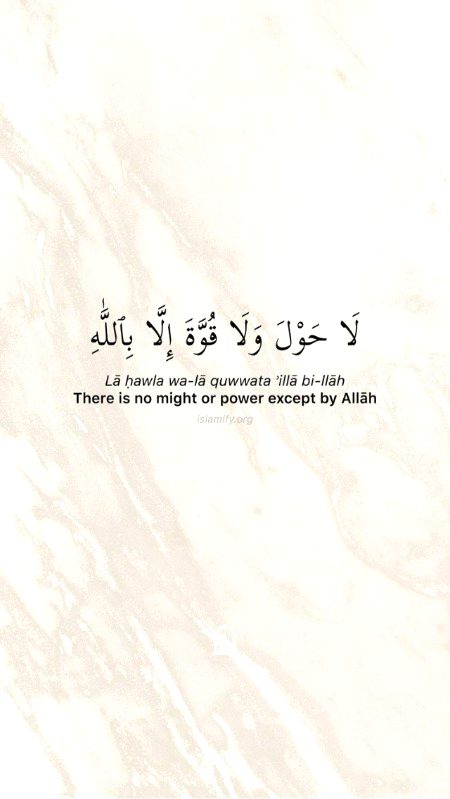 لَا حَوْلَ وَلَا قُوَّةَ إِلَّا بِٱللَّٰهِ
Lā ḥawla wa-lā quwwata ʾillā bi-llāh
There is no might or power except by Allāh
islamify.org